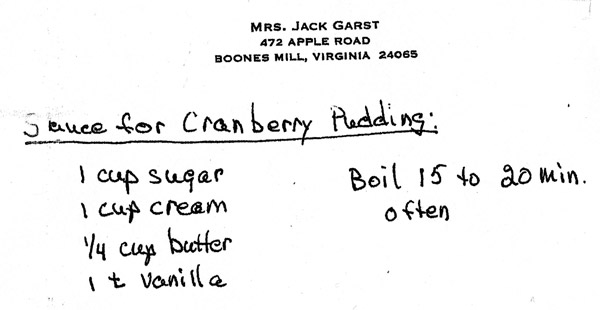 MRS. JACK GARST
472 APPLE ROAD
BOONES MILL, VIRGINIA 24065
Sauce for Cranberry Pudding:
1 cup sugar
1 cup cream
1/4 cup butter
1 t vanilla
Boil 15 to 20 min.
often